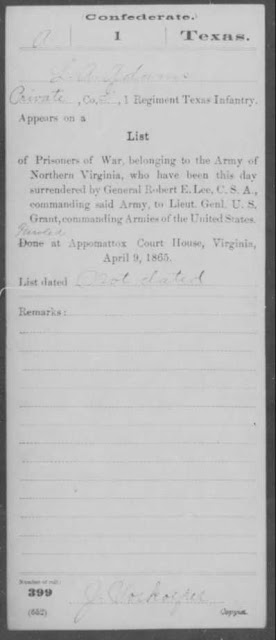 Confederate.
A | 1 | Texas.
L. A. Adams
Private, Co. E, 1 Regiment Texas Infantry.
Appears on a
List
of Prisoners of War, belonging to the Army of
Northern Virginia, who have been this day
surrendered by General Robert E. Lee, C. S. A.,
commanding said Army, to Lieut. Genl. U. S.
Grant, commanding Armies of the United States.
Paroled
Done at Appomattox Court House, Virginia,
April 9, 1865.
List dated Not dated
Remarks:
Number of roll:
399
(652) Copyist.